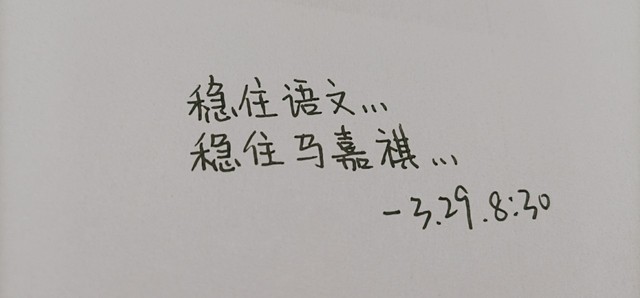 稳住语文...
稳住马嘉祺...
-3.29.8:30